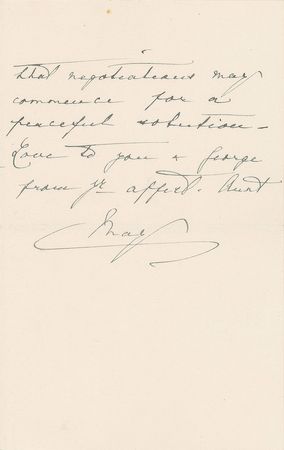 that negotiations may
commence for a
peaceful solution –
Love to you & George
from yr. affect. Aunt
May